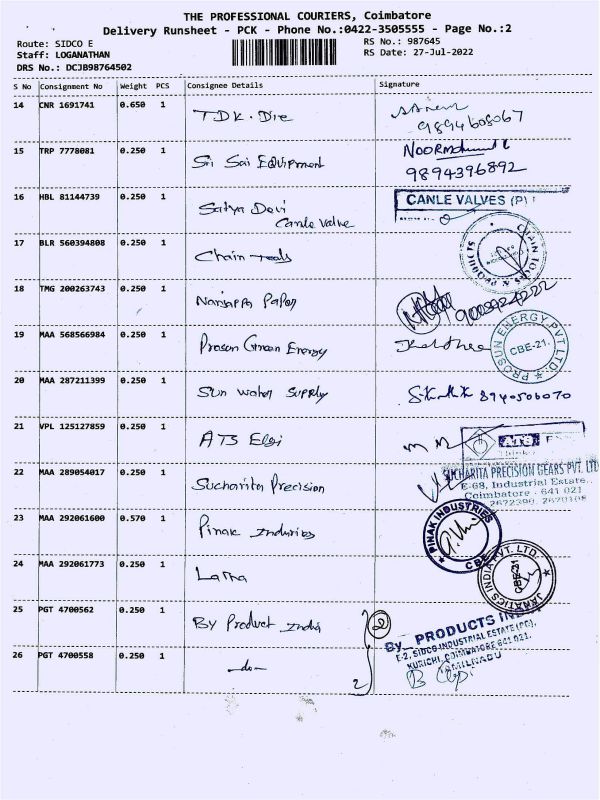 THE PROFESSIONAL COURIERS, Coimbatore
Delivery Runsheet - PCK - Phone No.:0422-3505555 - Page No.:2
Route: SIDCO E
RS No.: 987645
Staff: LOGANATHAN
RS Date: 27-Jul-2022
DRS No.: DCJB98764502
S No Consignment No Weight PCS Consignee Details Signature
14 CNR 1691741 0.650 1 TDK. Die
9894608067
15 TRP 7778081 0.250 1 Sri Sai Equipment
9894396892
16 HBL 81144739 0.250 1 Satya Devi
Canle Valve
CANLE VALVES (P)
17 BLR 560394808 0.250 1 Chain tools
& PRODUCTS
18 TMG 200263743 0.250 1 Nanjappa Paper
19 MAA 568566984 0.250 1 Prosun Green Energy
PROSUN ENERGY PVT. LTD.
CBE-21.
20 MAA 287211399 0.250 1 Sun water Supply
8940506070
21 VPL 125127859 0.250 1 ATS Elgi
ATS
22 MAA 289054017 0.250 1 Sucharita Precision
SUCHARITA PRECISION GEARS PVT. LTD
E-68, Industrial Estate,
Coimbatore - 641 021
23 MAA 292061600 0.570 1 Pinak Industries
PINAK INDUSTRIES
CBE
24 MAA 292061773 0.250 1
JANATICS INDIA PVT. LTD.
CBE-21
25 PGT 4700562 0.250 1 By Product India
By PRODUCTS
E-2, SIDCO INDUSTRIAL ESTATE (PO),
KURICHI, COIMBATORE 641 021.
TAMILNADU
26 PGT 4700558 0.250 1 -do-
2